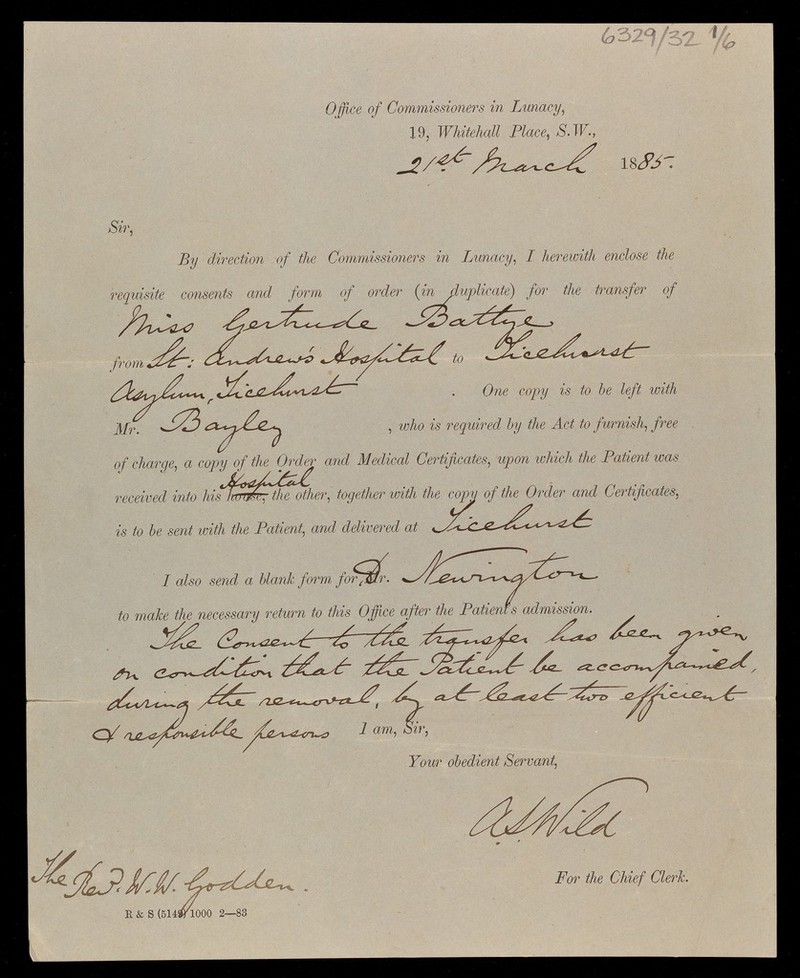 6329/32 1/6
Office of Commissioners in Lunacy,
19, Whitehall Place, S.W.,
21st. March 1885.
Sir,
By direction of the Commissioners in Lunacy, I herewith enclose the
requisite consents and form of order (in duplicate) for the transfer of
Miss Gertrude Battye
from St: Andrew's Hospital to Ticehurst
Asylum, Ticehurst. One copy is to be left with
Mr. Bayley, who is required by the Act to furnish, free
of charge, a copy of the Order and Medical Certificates, upon which the Patient was
Hospital
received into his house; the other, together with the copy of the Order and Certificates,
is to be sent with the Patient, and delivered at Ticehurst
I also send a blank form for Dr. Newington
to make the necessary return to this Office after the Patient's admission.
The Consent to the transfer has been given
on condition that the Patient be accompanied,
during the removal, by at least two efficient
& responsible persons I am, Sir,
Your obedient Servant,
A.S. Wild
For the Chief Clerk.
The Rev. W. W. Godden.
R & S (5149) 1000 2—83